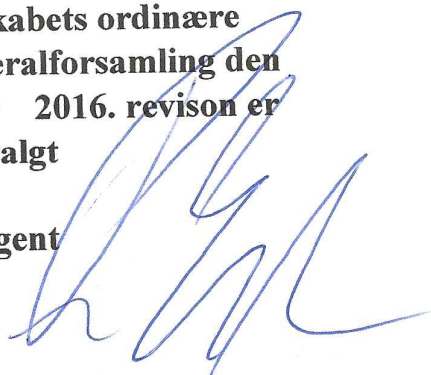 kabets ordinære
eralforsamling den
2016. revison er
algt
gent